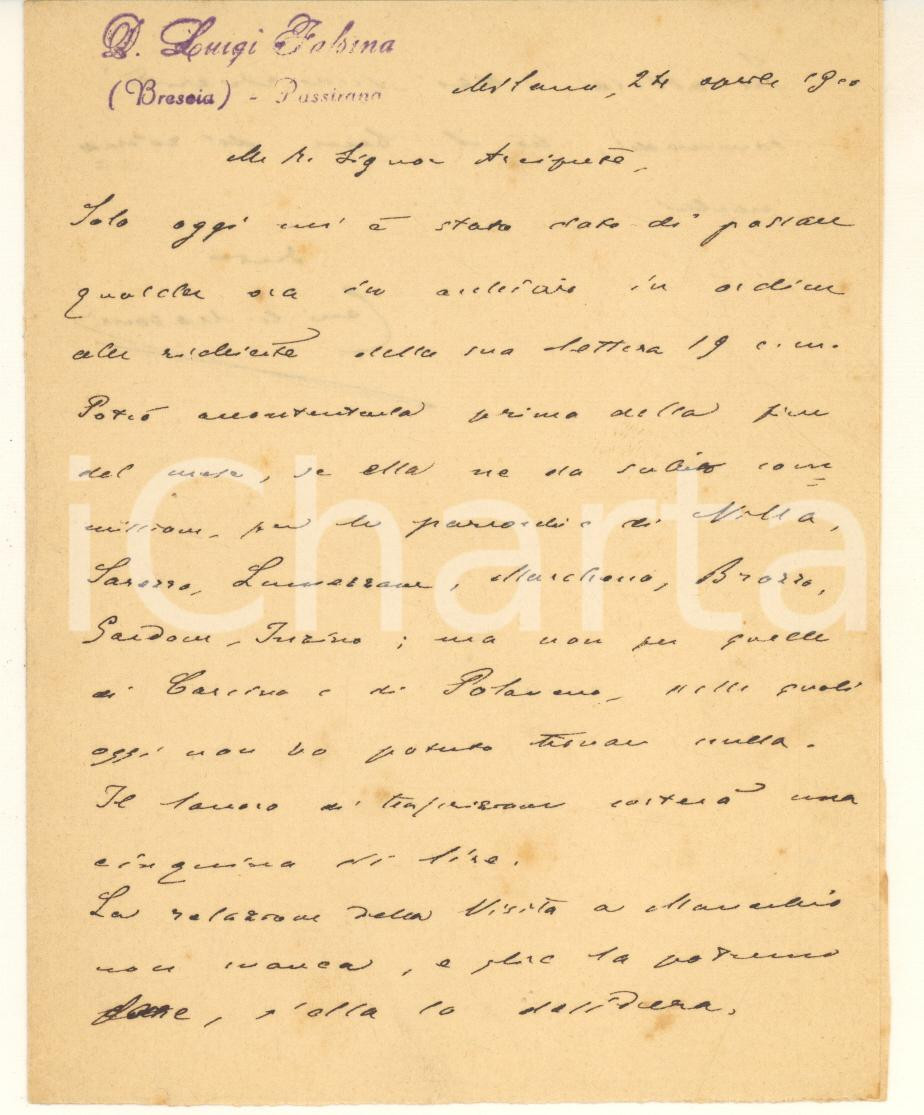 D. Luigi Falsina
(Brescia) - Passirana
Milano, 24 aprile 1910
M. R. Signor Arciprete,
Solo oggi mi è stato dato di passare
qualche ora in archivio in ordine
alle richieste della sua lettera 19 c. m.
Potrò accontentarla prima della fine
del mese, se ella ne da subito com=
missione, per le parrocchie di Villa,
Sarezzo, Lumezzane, Marcheno, Brozzo,
Gardone, Inzino; ma non per quelle
di Carcina e di Polaveno, delle quali
oggi non ho potuto trovare nulla.
Il lavoro di trascrizione costerà una
cinquina di lire.
La relazione della Visita a
non manca, e la potremo
fare, s'ella lo desidera.
iCharta